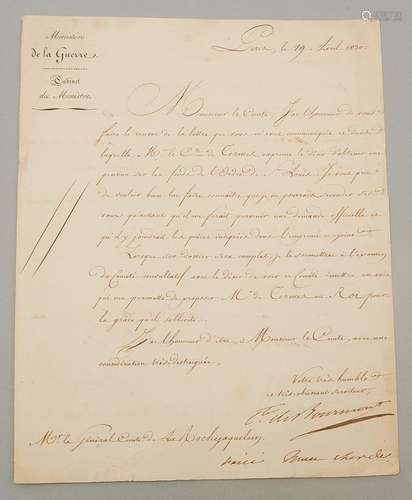 Ministère
de la Guerre.
Cabinet
du Ministre.
Paris, le 19 Avril 1830.
Monsieur le Comte, J'ai l'honneur de vous
faire le renvoi de la lettre que vous m'avez communiquée et dans
laquelle Mr. le Cte. de exprime le désir d'obtenir une
pension sur les fonds de l'Ordre de St. Louis. Je vous prie
de vouloir bien lui faire connaître que je ne pourrais
vœux qu'autant qu'il me ferait parvenir une demande officielle et
qu'il y joindrait les pièces indiquées dont l'imprimé ci-joint.
Lorsque son dossier sera complet, je le soumettrai à l'examen
du Comité consultatif avec le désir de voir ce Comité émettre un avis
qui me permette de proposer Mr. de au Roi pour
la grâce qu'il sollicite.
J'ai l'honneur d'être, Monsieur le Comte, avec une
considération très distinguée,
Votre très humble
et très obéissant serviteur,
Cte. de Bourmont
Mr. le Général Comte de La Rochejaquelein